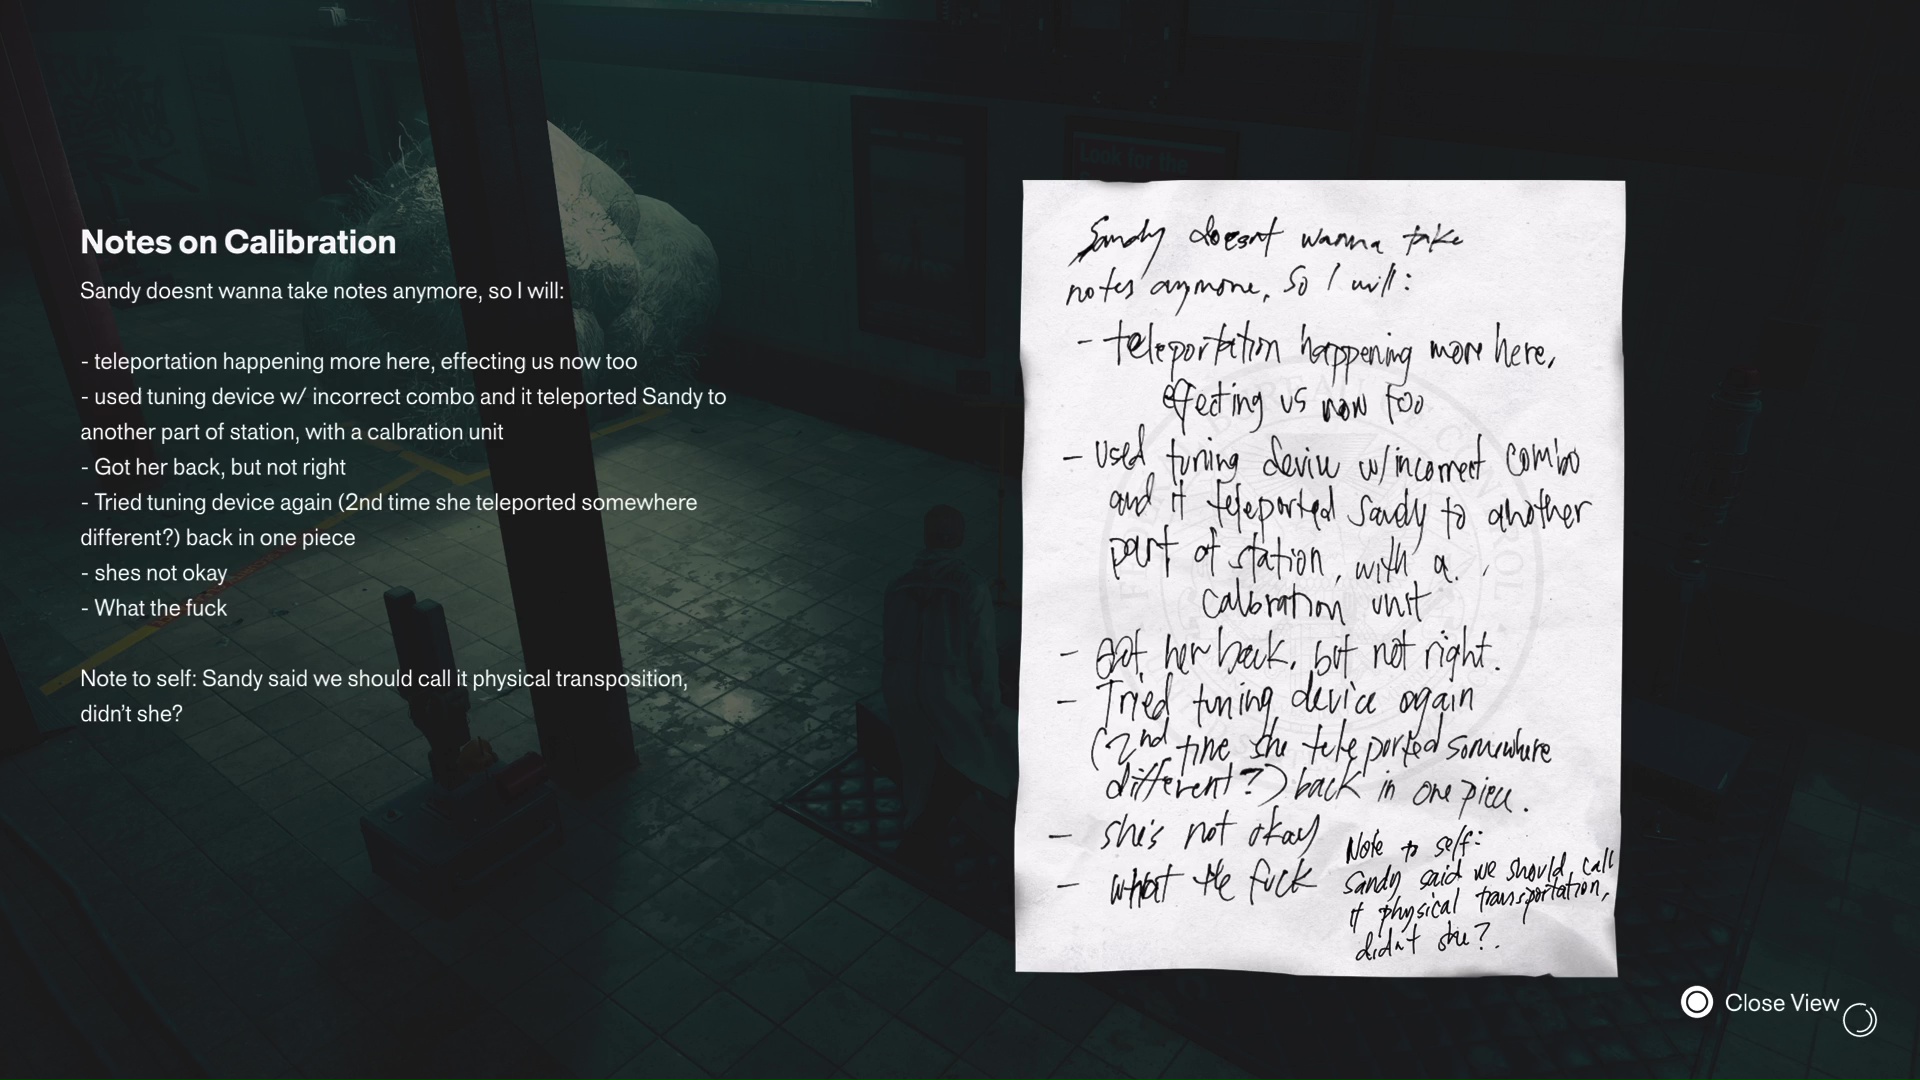 Look for the
Notes on Calibration
Sandy doesnt wanna take notes anymore, so I will:
- teleportation happening more here, effecting us now too
- used tuning device w/ incorrect combo and it teleported Sandy to
another part of station, with a calbration unit
- Got her back, but not right
- Tried tuning device again (2nd time she teleported somewhere
different?) back in one piece
- shes not okay
- What the fuck
Note to self: Sandy said we should call it physical transposition,
didn't she?
Sandy doesnt wanna take
notes anymore, so I will:
- teleportation happening more here,
effecting us now too
- used tuning device w/incorrect combo
and it teleported Sandy to another
part of station, with a
calbration unit
- Got her back, but not right.
- Tried tuning device again
(2nd time she teleported somewhere
different?) back in one piece.
- she's not okay
- what the fuck
Note to self:
Sandy said we should call
it physical transportation,
didn't she?
Close View